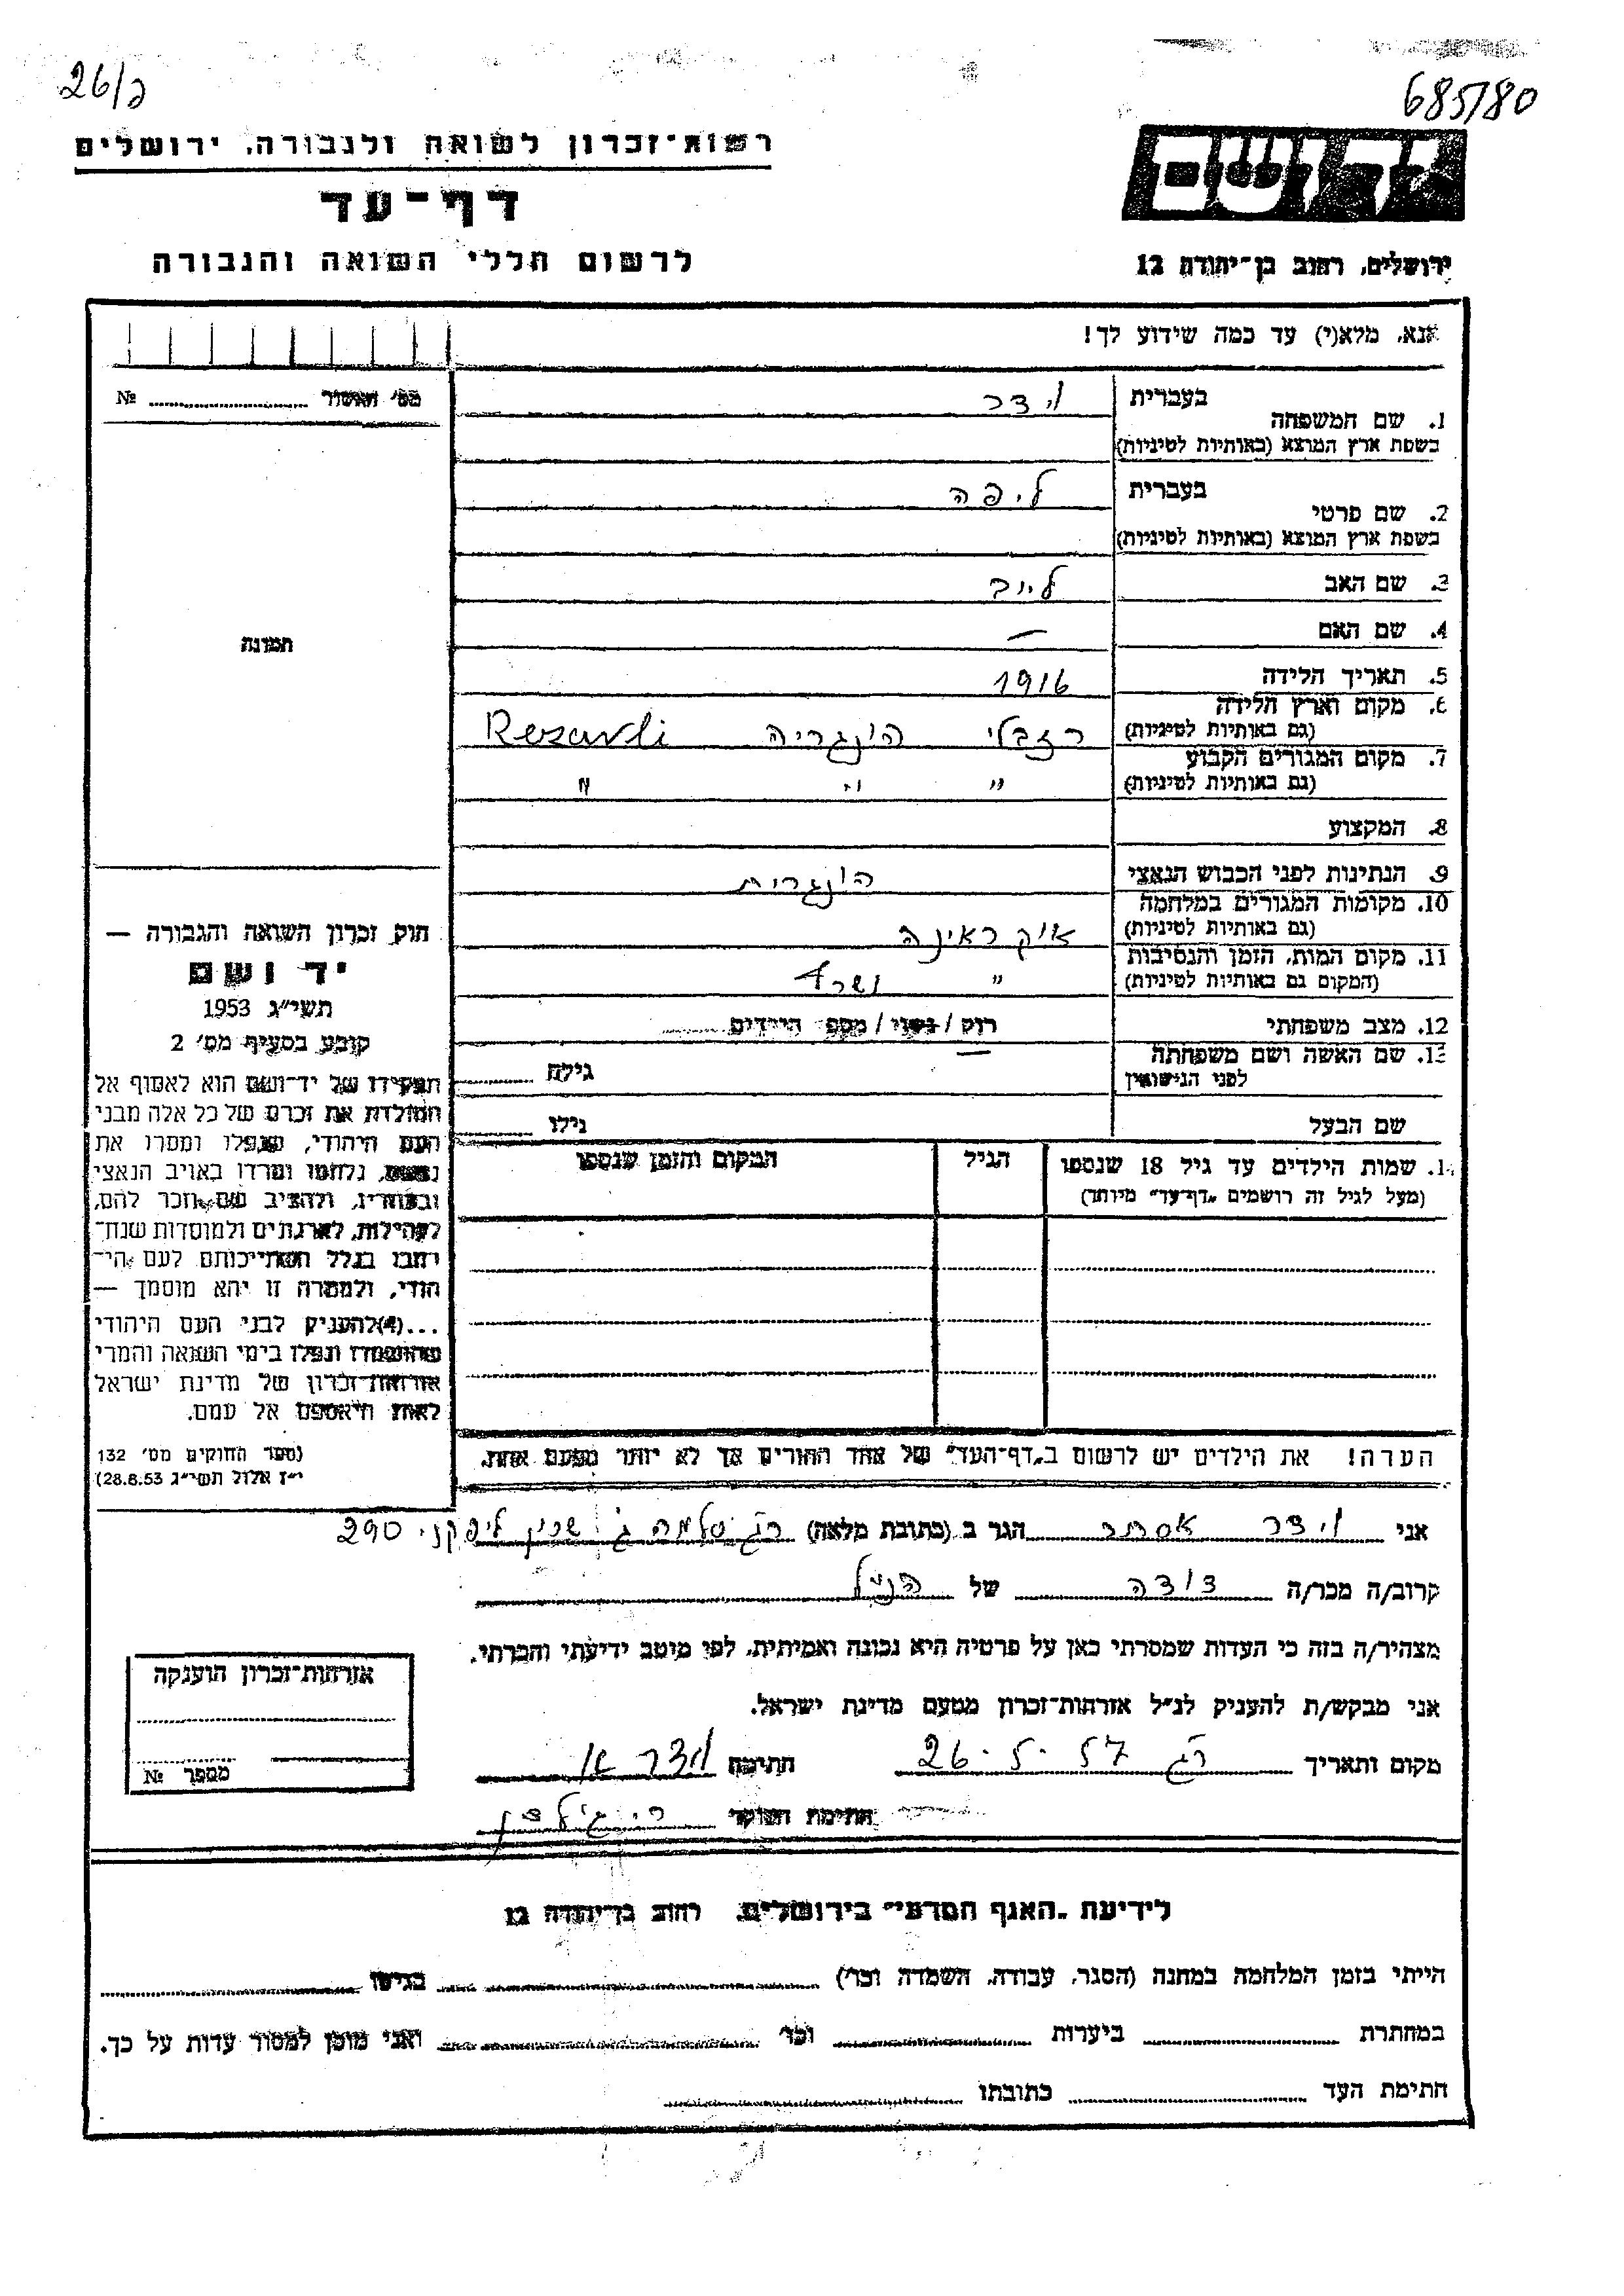 26/ג
685/80
רשות־זכרון לשואה ולגבורה, ירושלים
דף־עד
לרשום חללי השואה והגבורה
יד ושם
ירושלים, רחוב בן־יהודה 12
אנא, מלא(י) עד כמה שידוע לך!
מס' האשור № 
תמונה
בעברית וידר
1. שם המשפחה
בשפת ארץ המוצא (באותיות לטיניות)
בעברית ליפה
2. שם פרטי
בשפת ארץ המוצא (באותיות לטיניות)
3. שם האב לייב
4. שם האם —
5. תאריך הלידה 1916
6. מקום וארץ הלידה
(גם באותיות לטיניות) רזבלי הונגריה Resavli
7. מקום המגורים הקבוע
(גם באותיות לטיניות) " " "
8. המקצוע
9. הנתינות לפני הכבוש הנאצי הונגרית
10. מקומות המגורים במלחמה
(גם באותיות לטיניות) אוקראינה
11. מקום המות, הזמן והנסיבות
(המקום גם באותיות לטיניות) "
12. מצב משפחתי רוק / נשוי / מספר הילדים
13. שם האשה ושם משפחתה
לפני הנישואין גילה
שם הבעל גילו
14. שמות הילדים עד גיל 18 שנספו הגיל המקום והזמן שנספו
(מעל לגיל זה רושמים "דף־עד" מיוחד)
הערה! את הילדים יש לרשום ב"דף־העד" של אחד ההורים אך לא יותר מפעם אחת.
חוק זכרון השואה והגבורה —
יד ושם
תשי"ג 1953
קובע בסעיף מס' 2
תפקידו של יד־ושם הוא לאסוף אל
המולדת את זכרם של כל אלה מבני
העם היהודי, שנפלו ומסרו את
נפשם, נלחמו ומרדו באויב הנאצי
ובעוזריו, ולהציב שם וזכר להם,
לקהילות, לארגונים ולמוסדות שנח־
רבו בגלל השתייכותם לעם הי־
הודי, ולמטרה זו יהא מוסמך —
...(4) להעניק לבני העם היהודי
שהושמדו ונפלו בימי השואה והמרי
אזרחות־זכרון של מדינת ישראל
לאות היאספם אל עמם.
(ספר החוקים מס' 132
י"ז אלול תשי"ג 28.8.53)
אני וידר אסתר הגר ב (כתובת מלאה) רג סלמה ג' שכון ליפקני 290
קרוב/ה מכר/ה דודה של הנ"ל
מצהיר/ה בזה כי העדות שמסרתי כאן על פרטיה היא נכונה ואמיתית, לפי מיטב ידיעתי והכרתי.
אני מבקש/ת להעניק לנ"ל אזרחות־זכרון מטעם מדינת ישראל.
מקום ותאריך רג 26.5.57 חתימה וידר א
חתימת הפוקד
אזרחות־זכרון הוענקה
מספר №
לידיעת "האגף המדעי" בירושלים, רחוב בן־יהודה 12
הייתי בזמן המלחמה במחנה (הסגר, עבודה, השמדה וכו') בגיטו
במחתרת ביערות וכו' ואני מוכן למסור עדות על כך.
חתימת העד כתובתו